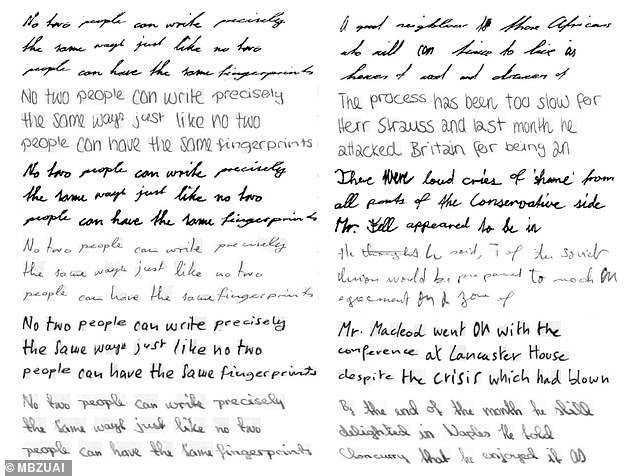 No two people can write precisely
the same way just like no two
people can have the same fingerprints
No two people can write precisely
the same way just like no two
people can have the same fingerprints
No two people can write precisely
the same way just like no two
people can have the same fingerprints
No two people can write precisely
the same way just like no two
people can have the same fingerprints
No two people can write precisely
the same way just like no two
people can have the same fingerprints
No two people can write precisely
the same way just like no two
people can have the same fingerprints
A good neighbour those Africans
who will to live as
of and of
The process has been too slow for
Herr Strauss and last month he
attacked Britain for being an
There were loud cries of 'shame' from
all parts of the Conservative side
Mr. appeared to be in
He he said, of the Soviet
Union would be prepared to much on
agreement on a zone of
Mr. Macleod went on with the
conference at Lancaster House
despite the crisis which had blown
By the end of the month he still
delighted in Naples he told
that he enjoyed it as
© MBZUAI